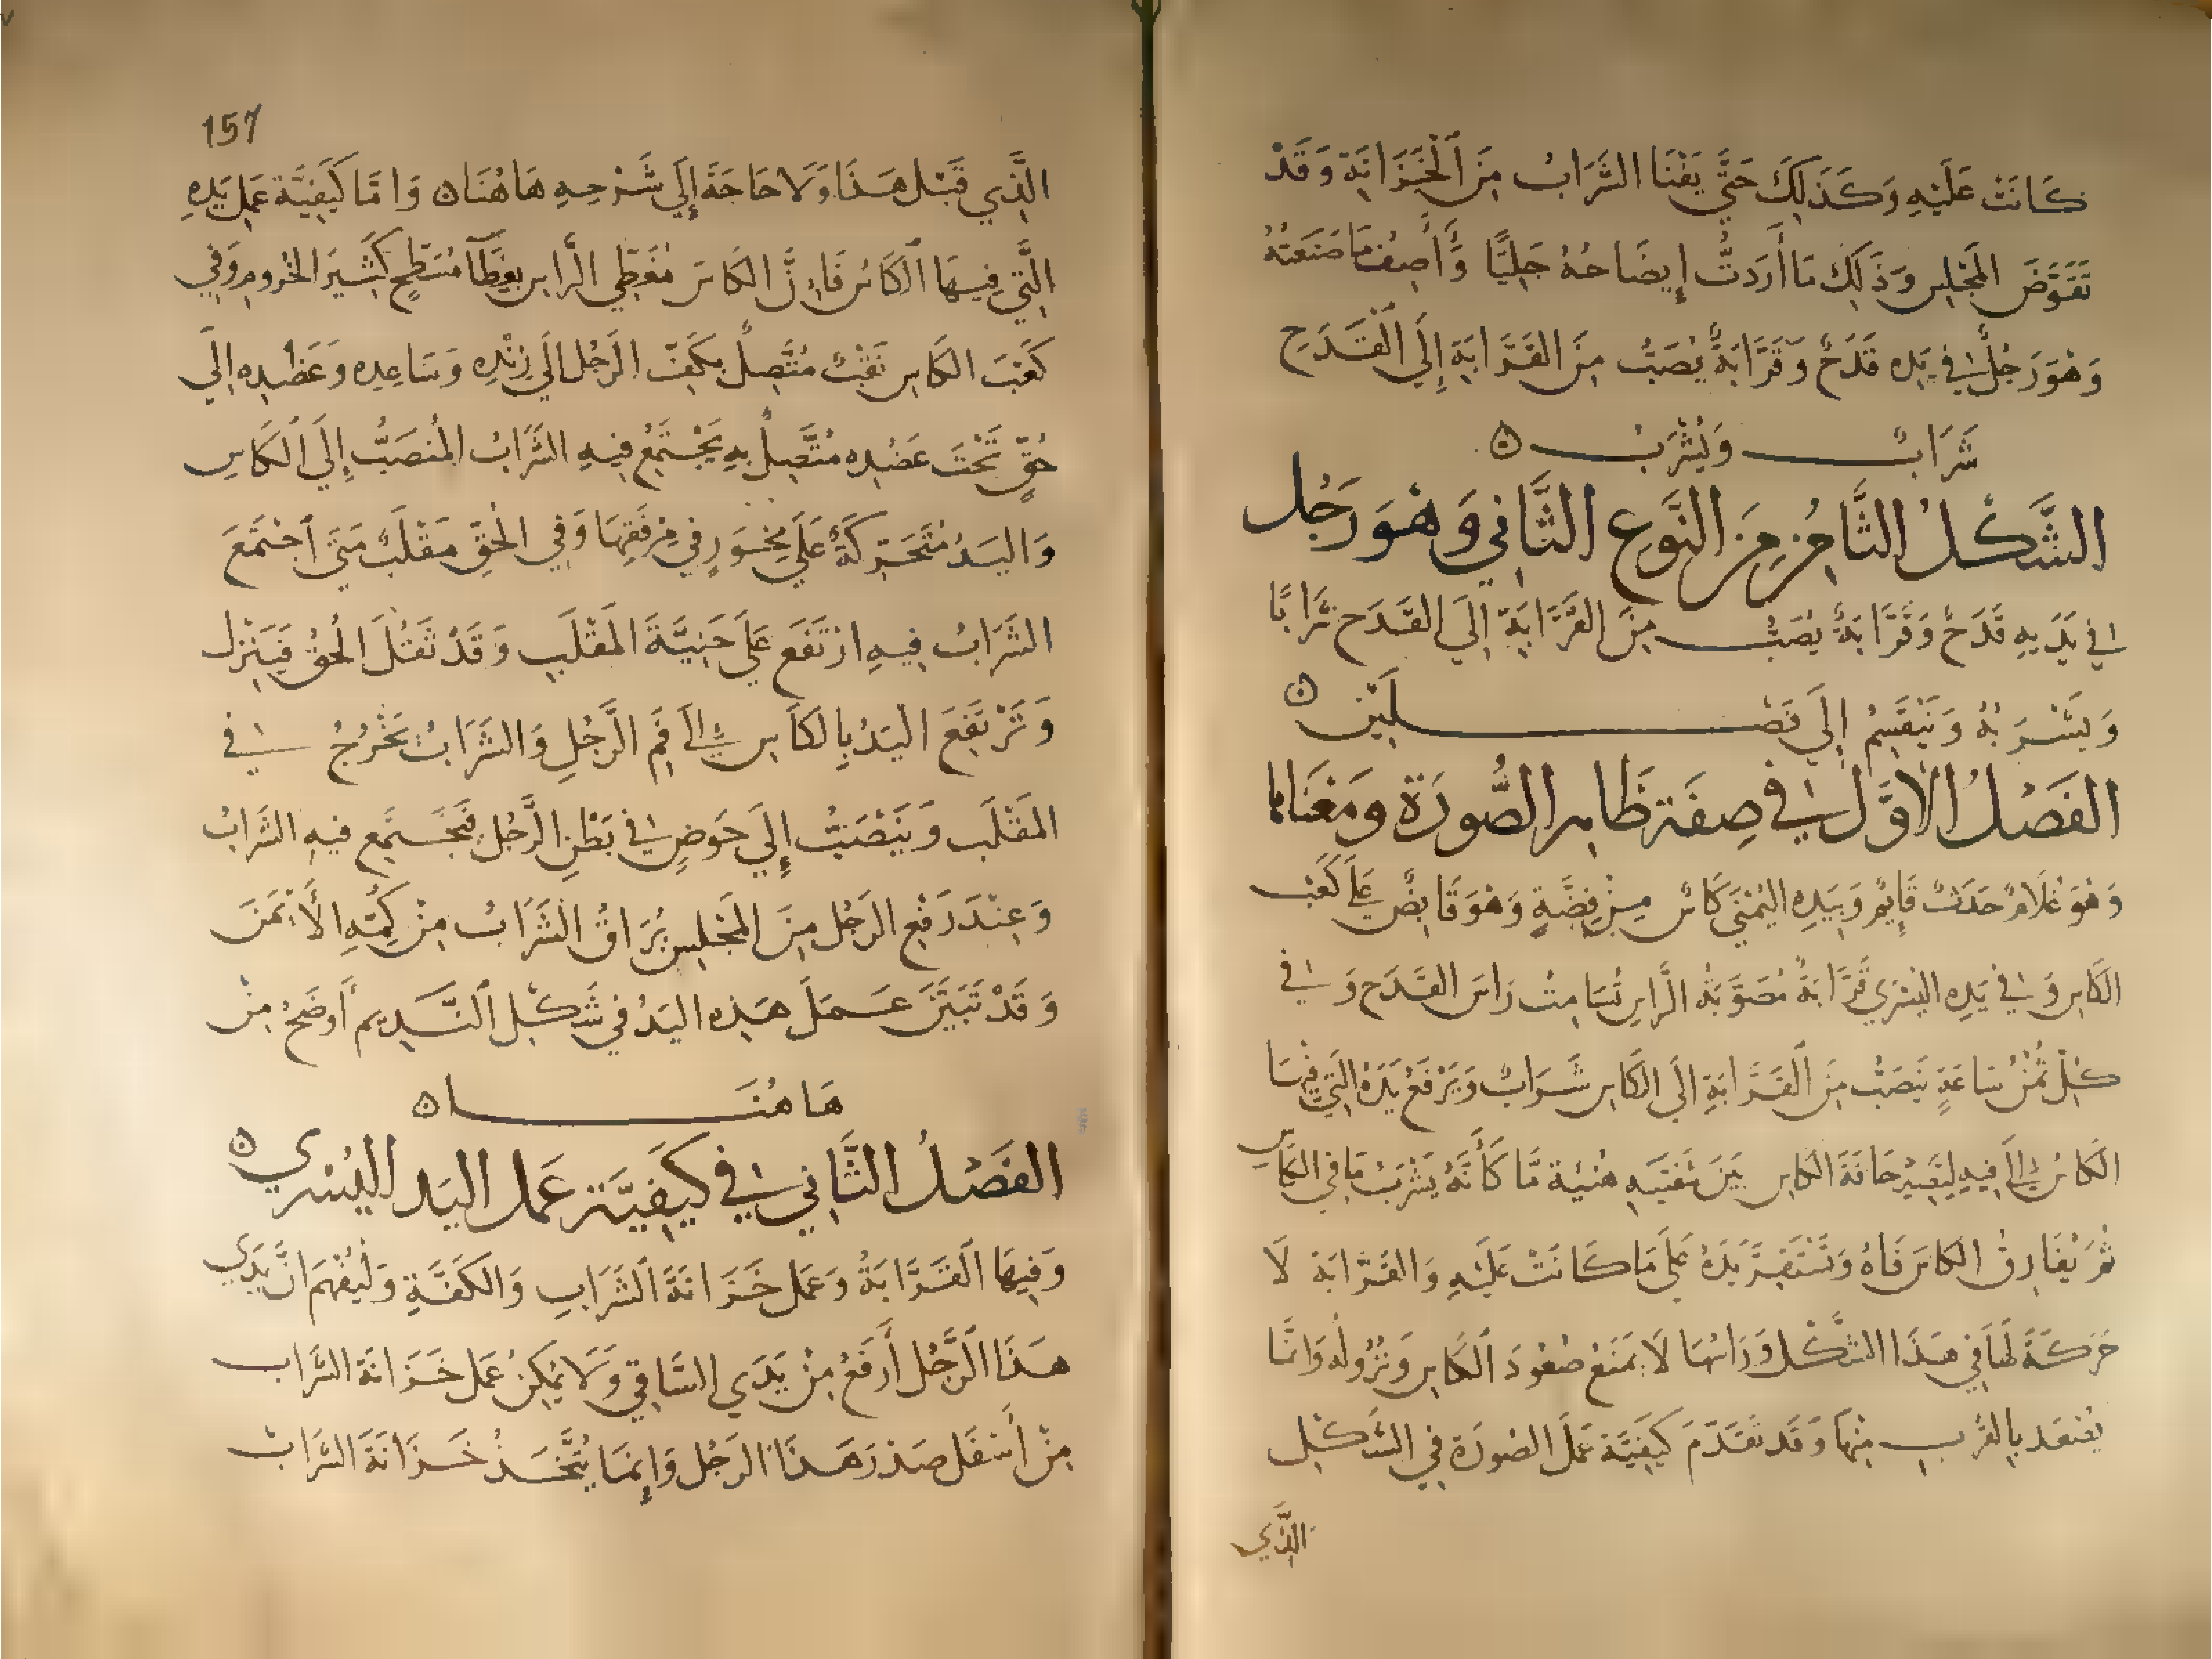 كَانَتْ عَلَيْهِ وَكَذَلِكَ حَتَّي يَفْنَا الشَّرَابُ مِنَ الْخَزَانَةِ وَقَدْ
تَقَوَّضَ المَجْلِس وَذَلِكَ مَا أَرَدتُّ إِيضَاحُهُ جَلِيًّا وَأَصِفُ مَا صَنَعتُهُ
وَهُوَ رَجُلٌ فِي يَدِه قَدَحٌ وَقَرَّابَةٌ يُصَبُّ مِنَ القَرَّابَةِ إِلَي الْقَدَحِ
شَرَابٌ وَيُشْرَبُ ه
الشَّكْلُ الثَّامِنُ مِنَ النَّوعِ الثَّانِي وَهُوَ رَجُل
فِي يَدَيهِ قَدَحٌ وَقَرَّابَةٌ يُصَبُّ مِنَ القَرَّابَةِ إِلَي القَدَحِ شَرَابًا
وَيَشْرَبُهُ وَيَنْقَسِمُ إِلَي فَصْلَيْنِ ه
الفَصْلُ الاوَّل فِي صِفَةِ ظَاهِرِ الصُّورَةِ وَمَعْنَاهَا
وَهُوَ غُلَامٌ حَدَثٌ قَايِمٌ وَبِيَدِهِ اليُمْنَي كَاسٌ مِنْ فِضَّةٍ وَهُوَ قَابِضٌ عَلَي كَعْبِ
الكَاسِ وَفِي يَدِهِ اليُسْرَي قَرَّابَةٌ مُصَوَّبَةُ الرَّاسِ تُسَامِتُ رَاسَ القَدَحِ وَفِي
كُلِّ ثُمْنُ سَاعَةٍ يَنصَبُّ مِنَ القَرَّابَةِ الَي الكَاسِ شَرَابٌ وَيَرْفَعُ يَدَهُ الَّتِي فِيهَا
الكَاسُ إِلَي فِيهِ لِتَصِيرَ حَافَةَ الكَاسِ بَيْنَ شَفَتَيهِ هُنَيئَة مَّا كَأَنَّهُ يَشْرَبُ مَا فِي الكَاسِ
ثُمَّ يُفَارِقُ الكَاسَ فَاهُ وَتَسْتَقِرُّ يَدَهُ عَلَي مَا كَانَتْ عَلَيْهِ وَالقَرَّابَة لَا
حَرَكَةَ لَهَا فِي هَذَا الشَّكْلِ وَرَاسُهَا لَا يَمنَعُ صُعُودَ الكَاسِ وَنُزُولُهُ وَانَّمَا
يُقْعَد بِالقُربِ مِنْهَا وَقَد تَقَدَّمَ كَيفِيَّة عَمَلَ الصُورَة فِي الشَّكْلِ
الَّذِي
157
الَّذِي قَبْل هَذَا وَلَا حَاجَةَ إِلَي شَرْحِهِ هَاهُنَا ه وَامَّا كَيفِيَّة عَمَل يَدِهِ
الَّتِي فِيهَا الكَاسُ فَاِنَّ الكَاسَ مُغَطَّي الرَّاسِ بِغِطَآ مُسَطَّحٍ كَثِيرَ الخُرومِ وَفِي
كَعْبَ الكَاسِ ثَقْبٌ مُتَّصِلٌ بِكَفِّ الرَجُل الَي زَنْدِهِ وَسَاعِدِه وَعَضُدِه الَي
حُقٍّ تَحْتَ عَضُدِه مُتَّصِلٌ بِهِ يَجْتَمِعُ فِيهِ الشَّرَابُ المُنصَبُّ إِلَي الكَاسِ
وَاليَدُ مُتَحَرِّكَةٌ عَلَي مِحْوَرٍ فِي مِرْفَقِهَا وَفِي الحُقِّ مَقْلَبٌ مَتَي اجْتَمَعَ
الشَرَابُ فِيهِ ارْتَفَعَ عَلَي جَنِيَّةَ المَقْلَبِ وَقَدْ ثَقُلَ الحُقُّ فَيَنْزِل
وَتَرْتَفِعَ اليَدُ بِالكَاسِ إِلَي فَمِ الرَّجُلِ وَالشَرَابُ يَخْرُجُ فِي
المَقْلَب وَيَنْصَبُّ إِلَي حَوضٍ فِي بَطْنِ الرَّجُل فَيَجْتَمِع فِيهِ الشَرَابُ
وَعِنْدَ رَفْعِ الرَجُلِ مِنَ المَجْلِسِ يُرَاقُ الشَرَابُ مِنْ كُمِّهِ الأَيْمَنَ
وَقَدْ تَبَيَّنَ عَمَلَ هَذِه اليَدُ فِي شَكْلِ النَّدِيم أَوضَحُ مِنْ
هَاهُنَا ه
الفَصْلُ الثَّانِي فِي كَيفِيَّة عَمَل اليَد اليُسْرَي ه
وَفِيهَا القَرَّابَةُ وَعَمَل خَزَانَةَ الشَرَابِ وَالكَفَّةِ وَلْيُفْهَم انَّ يَدَي
هَذَا الرَّجُل أَرفَعُ مِنْ يَدَي السَّاقِي وَلَا يُمْكِنُ عَمَل خَزَانَة الشَراب
مِنْ أَسْفَل صَدْرِ هَذَا الرَجُل وَإِنمَا يُتَّخَذُ خَزَانَةَ الشَرَاب